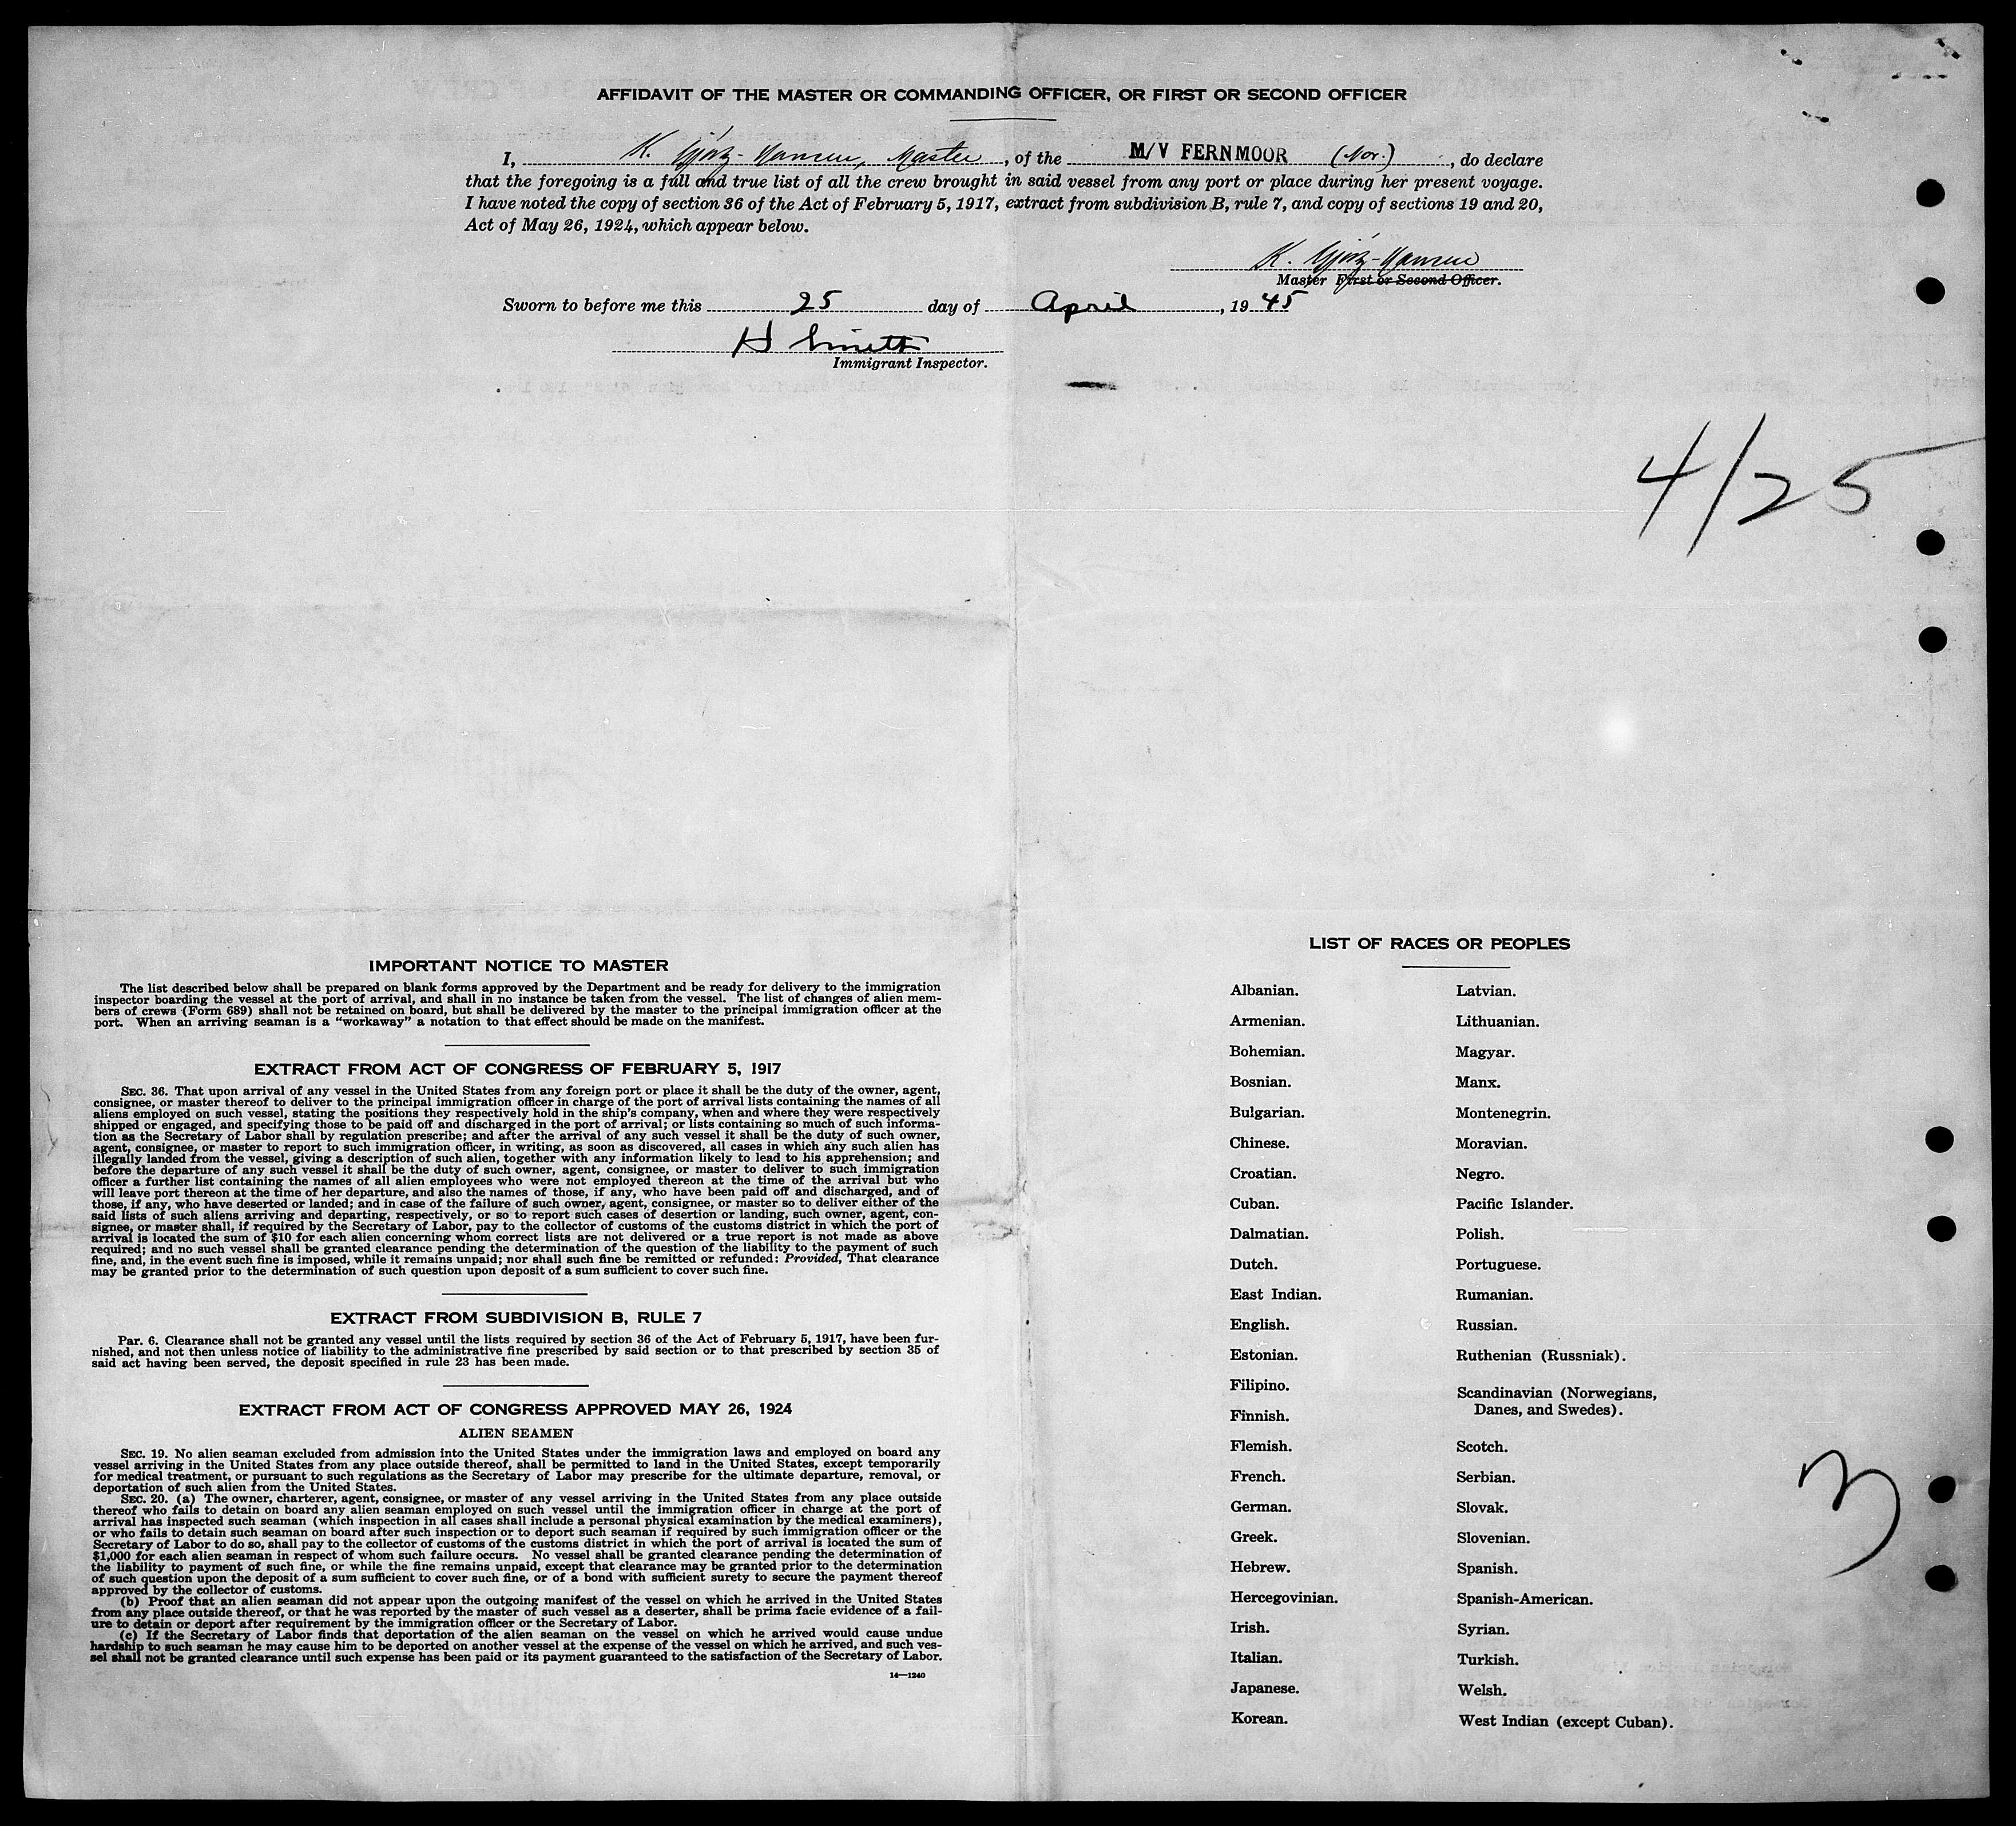 AFFIDAVIT OF THE MASTER OR COMMANDING OFFICER, OR FIRST OR SECOND OFFICER
I, K. Hansen, Master, of the M/V FERNMOOR (Nor.), do declare
that the foregoing is a full and true list of all the crew brought in said vessel from any port or place during her present voyage.
I have noted the copy of section 36 of the Act of February 5, 1917, extract from subdivision B, rule 7, and copy of sections 19 and 20,
Act of May 26, 1924, which appear below.
K. Hansen
Master First or Second Officer.
Sworn to before me this 25 day of April, 1945
H
Immigrant Inspector.
4/25
IMPORTANT NOTICE TO MASTER
The list described below shall be prepared on blank forms approved by the Department and be ready for delivery to the immigration
inspector boarding the vessel at the port of arrival, and shall in no instance be taken from the vessel. The list of changes of alien mem-
bers of crews (Form 689) shall not be retained on board, but shall be delivered by the master to the principal immigration officer at the
port. When an arriving seaman is a "workaway" a notation to that effect should be made on the manifest.
EXTRACT FROM ACT OF CONGRESS OF FEBRUARY 5, 1917
SEC. 36. That upon arrival of any vessel in the United States from any foreign port or place it shall be the duty of the owner, agent,
consignee, or master thereof to deliver to the principal immigration officer in charge of the port of arrival lists containing the names of all
aliens employed on such vessel, stating the positions they respectively hold in the ship's company, when and where they were respectively
shipped or engaged, and specifying those to be paid off and discharged in the port of arrival; or lists containing so much of such informa-
tion as the Secretary of Labor shall by regulation prescribe; and after the arrival of any such vessel it shall be the duty of such owner,
agent, consignee, or master to report to such immigration officer, in writing, as soon as discovered, all cases in which any such alien has
illegally landed from the vessel, giving a description of such alien, together with any information likely to lead to his apprehension; and
before the departure of any such vessel it shall be the duty of such owner, agent, consignee, or master to deliver to such immigration
officer a further list containing the names of all alien employees who were not employed thereon at the time of the arrival but who
will leave port thereon at the time of her departure, and also the names of those, if any, who have been paid off and discharged, and of
those, if any, who have deserted or landed; and in case of the failure of such owner, agent, consignee, or master so to deliver either of the
said lists of such aliens arriving and departing, respectively, or so to report such cases of desertion or landing, such owner, agent, con-
signee, or master shall, if required by the Secretary of Labor, pay to the collector of customs of the customs district in which the port of
arrival is located the sum of $10 for each alien concerning whom correct lists are not delivered or a true report is not made as above
required; and no such vessel shall be granted clearance pending the determination of the question of the liability to the payment of such
fine, and, in the event such fine is imposed, while it remains unpaid; nor shall such fine be remitted or refunded: Provided, That clearance
may be granted prior to the determination of such question upon deposit of a sum sufficient to cover such fine.
EXTRACT FROM SUBDIVISION B, RULE 7
Par. 6. Clearance shall not be granted any vessel until the lists required by section 36 of the Act of February 5, 1917, have been fur-
nished, and not then unless notice of liability to the administrative fine prescribed by said section or to that prescribed by section 35 of
said act having been served, the deposit specified in rule 23 has been made.
EXTRACT FROM ACT OF CONGRESS APPROVED MAY 26, 1924
ALIEN SEAMEN
SEC. 19. No alien seaman excluded from admission into the United States under the immigration laws and employed on board any
vessel arriving in the United States from any place outside thereof, shall be permitted to land in the United States, except temporarily
for medical treatment, or pursuant to such regulations as the Secretary of Labor may prescribe for the ultimate departure, removal, or
deportation of such alien from the United States.
SEC. 20. (a) The owner, charterer, agent, consignee, or master of any vessel arriving in the United States from any place outside
thereof who fails to detain on board any alien seaman employed on such vessel until the immigration officer in charge at the port of
arrival has inspected such seaman (which inspection in all cases shall include a personal physical examination by the medical examiners),
or who fails to detain such seaman on board after such inspection or to deport such seaman if required by such immigration officer or the
Secretary of Labor to do so, shall pay to the collector of customs of the customs district in which the port of arrival is located the sum of
$1,000 for each alien seaman in respect of whom such failure occurs. No vessel shall be granted clearance pending the determination of
the liability to the payment of such fine, or while the fine remains unpaid, except that clearance may be granted prior to the determination
of such question upon the deposit of a sum sufficient to cover such fine, or of a bond with sufficient surety to secure the payment thereof
approved by the collector of customs.
(b) Proof that an alien seaman did not appear upon the outgoing manifest of the vessel on which he arrived in the United States
from any place outside thereof, or that he was reported by the master of such vessel as a deserter, shall be prima facie evidence of a fail-
ure to detain or deport after requirement by the immigration officer or the Secretary of Labor.
(c) If the Secretary of Labor finds that deportation of the alien seaman on the vessel on which he arrived would cause undue
hardship to such seaman he may cause him to be deported on another vessel at the expense of the vessel on which he arrived, and such ves-
sel shall not be granted clearance until such expense has been paid or its payment guaranteed to the satisfaction of the Secretary of Labor.
14—1240
LIST OF RACES OR PEOPLES
Albanian.
Armenian.
Bohemian.
Bosnian.
Bulgarian.
Chinese.
Croatian.
Cuban.
Dalmatian.
Dutch.
East Indian.
English.
Estonian.
Filipino.
Finnish.
Flemish.
French.
German.
Greek.
Hebrew.
Hercegovinian.
Irish.
Italian.
Japanese.
Korean.
Latvian.
Lithuanian.
Magyar.
Manx.
Montenegrin.
Moravian.
Negro.
Pacific Islander.
Polish.
Portuguese.
Rumanian.
Russian.
Ruthenian (Russniak).
Scandinavian (Norwegians,
Danes, and Swedes).
Scotch.
Serbian.
Slovak.
Slovenian.
Spanish.
Spanish-American.
Syrian.
Turkish.
Welsh.
West Indian (except Cuban).
3